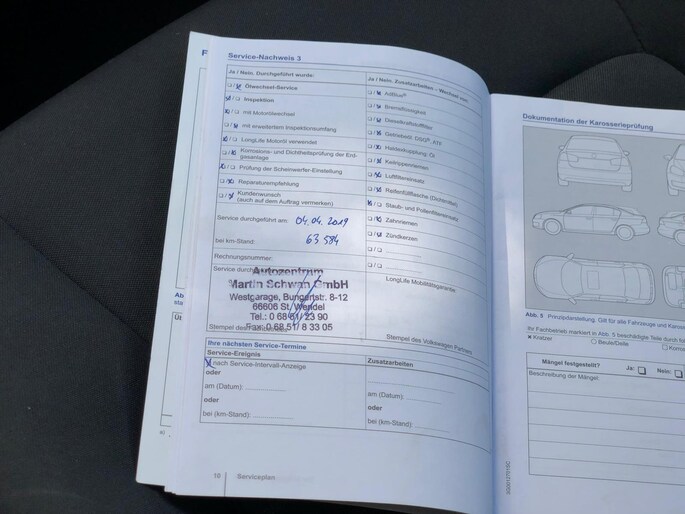 Service-Nachweis 3
Ja / Nein, Durchgeführt wurde:
Ölwechsel-Service
Inspektion
mit Motorölwechsel
mit erweitertem Inspektionsumfang
LongLife Motoröl verwendet
Korrosions- und Dichtheitsprüfung der Erd-
gasanlage
Prüfung der Scheinwerfer-Einstellung
Reparaturempfehlung
Kundenwunsch
(auch auf dem Auftrag vermerken)
Service durchgeführt am: 04.04.2019
bei km-Stand: 63 584
Rechnungsnummer:
Service
Autozentrum
Martin Schwan GmbH
Westgarage, Bungertstr. 8-12
66606 St. Wendel
Tel.: 0 68 51/ 23 90
Fax: 0 68 51/ 8 33 05
Stempel des
Ja / Nein, Zusatzarbeiten – Wechsel von:
AdBlue®
Bremsflüssigkeit
Dieselkraftstofffilter
Getriebeöl: DSG®, ATF
Haldexkupplung: Öl
Keilrippenriemen
Luftfiltereinsatz
Reifenfüllflasche (Dichtmittel)
Staub- und Pollenfiltereinsatz
Zahnriemen
Zündkerzen
LongLife Mobilitätsgarantie:
Stempel des Volkswagen Partners
Ihre nächsten Service-Termine
Service-Ereignis
nach Service-Intervall-Anzeige
oder
am (Datum):
oder
bei (km-Stand):
Zusatzarbeiten
am (Datum):
oder
bei (km-Stand):
10 Serviceplan
Dokumentation der Karosserieprüfung
Abb. 5 Prinzipdarstellung. Gilt für alle Fahrzeuge und
Ihr Fachbetrieb markiert in Abb. 5 beschädigte Teile durch
Kratzer
Beule/Delle
Mängel festgestellt? Ja: Nein:
Beschreibung der Mängel: